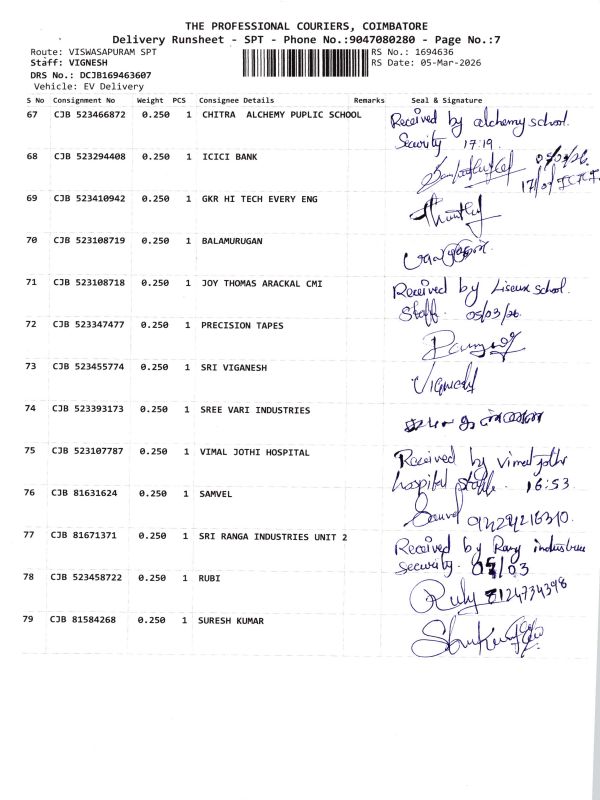 THE PROFESSIONAL COURIERS, COIMBATORE
Delivery Runsheet - SPT - Phone No.:9047080280 - Page No.:7
Route: VISWASAPURAM SPT RS No.: 1694636
Staff: VIGNESH RS Date: 05-Mar-2026
DRS No.: DCJB169463607
Vehicle: EV Delivery
S No Consignment No Weight PCS Consignee Details Remarks Seal & Signature
67 CJB 523466872 0.250 1 CHITRA ALCHEMY PUPLIC SCHOOL Received by alchemy school.
Security 17:19
68 CJB 523294408 0.250 1 ICICI BANK
69 CJB 523410942 0.250 1 GKR HI TECH EVERY ENG
70 CJB 523108719 0.250 1 BALAMURUGAN
71 CJB 523108718 0.250 1 JOY THOMAS ARACKAL CMI Received by Liseux school.
Staff. 05/03/26
72 CJB 523347477 0.250 1 PRECISION TAPES
73 CJB 523455774 0.250 1 SRI VIGANESH
74 CJB 523393173 0.250 1 SREE VARI INDUSTRIES
75 CJB 523107787 0.250 1 VIMAL JOTHI HOSPITAL Received by vimal jothi
hospital staff. 16:53
76 CJB 81631624 0.250 1 SAMVEL
77 CJB 81671371 0.250 1 SRI RANGA INDUSTRIES UNIT 2 Received by
Security. 05/03
78 CJB 523458722 0.250 1 RUBI Ruby 8124734398
79 CJB 81584268 0.250 1 SURESH KUMAR